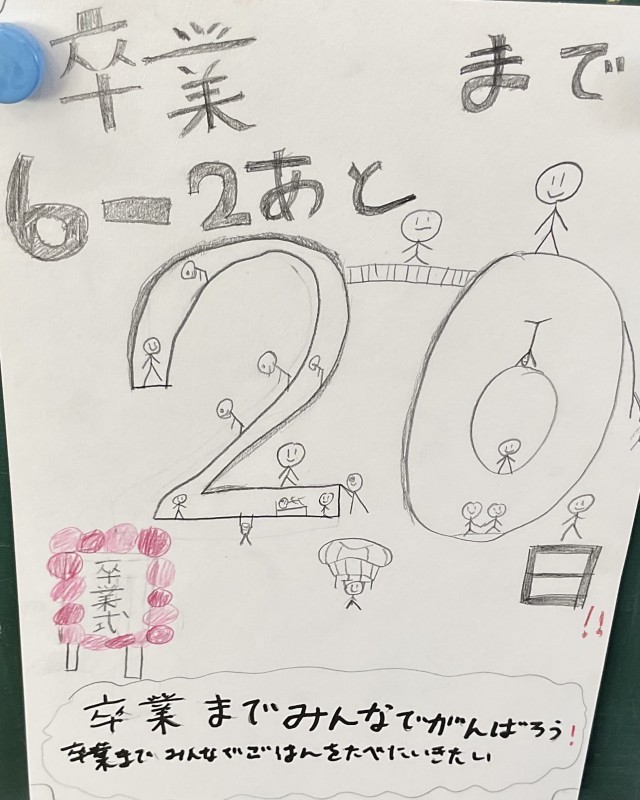 卒業まで
6-2あと
20
日!!
卒業式
卒業までみんなでがんばろう!
卒業までみんなでごはんをたべにいきたい